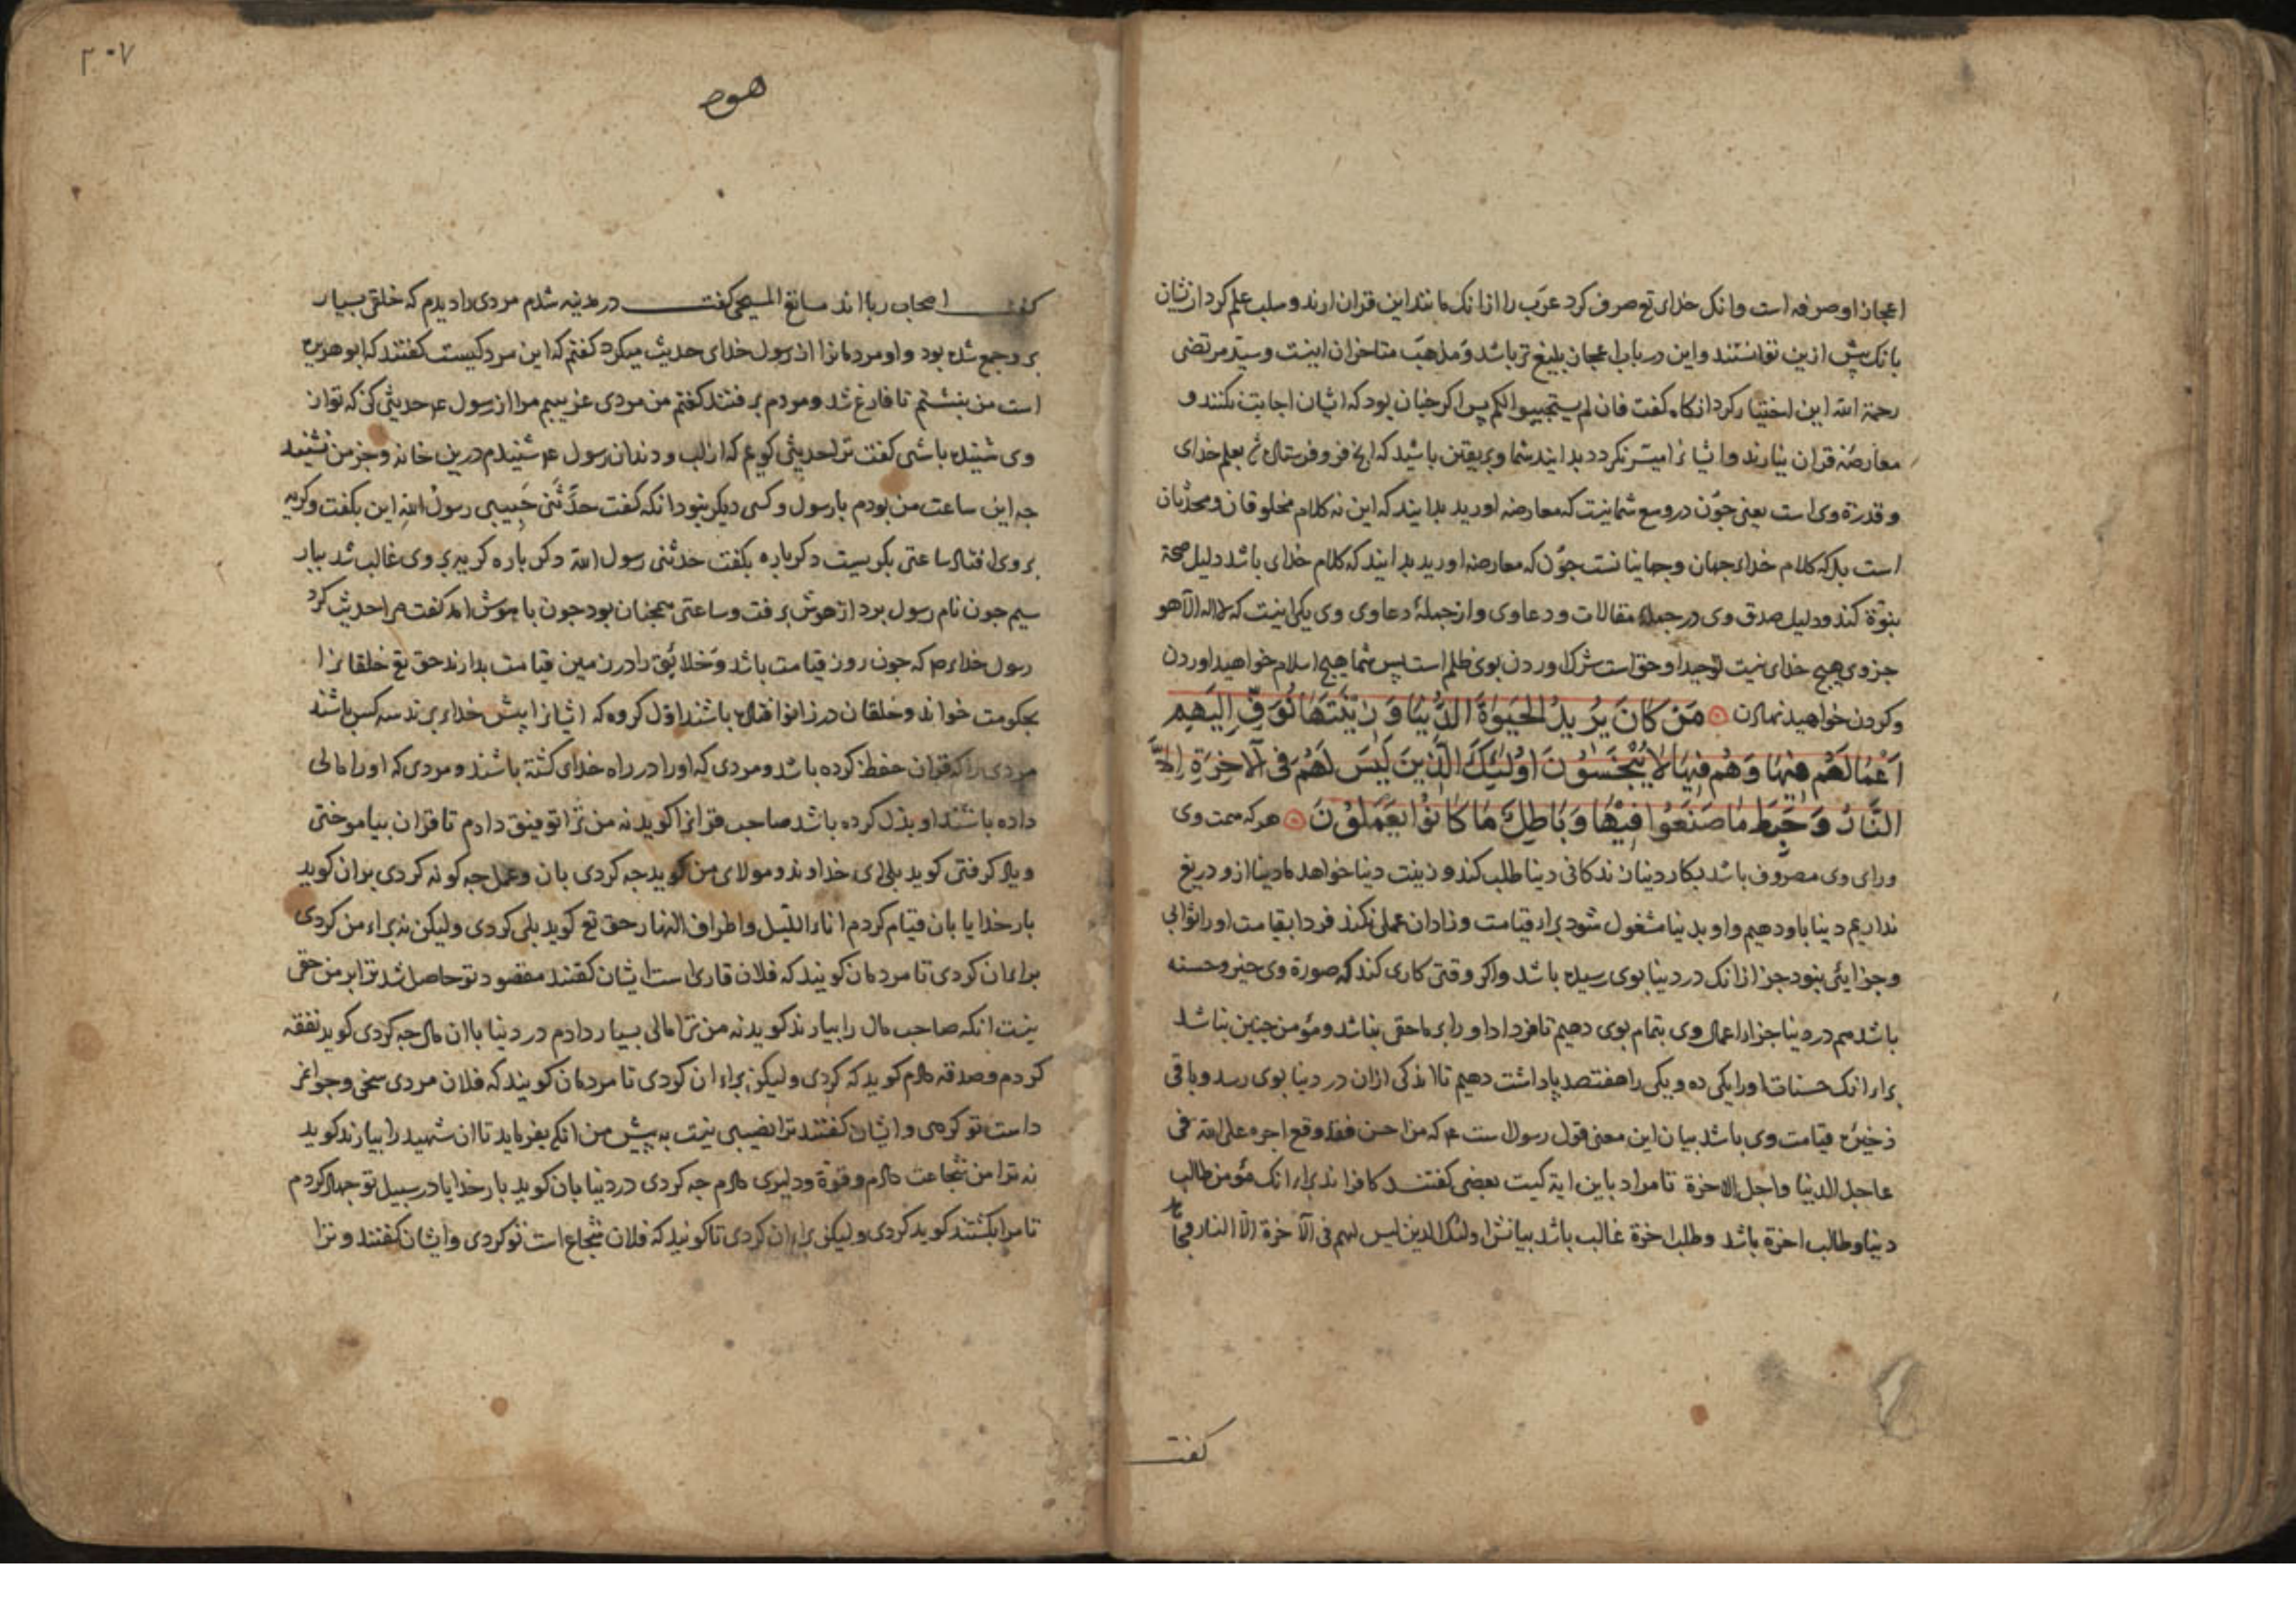 اعجاز او صرفه است و انک خدای تع صرف کرد عرب را ازانک مانند این قران ارند و سلب علم کرد ازیشان
بانک پیش ازین توانستند و این در باب اعجاز بلیغ تر باشد و مذهب متاخران اینست و سید مرتضی
رحمة الله این اختیار کرد انکاه کفت فان لم یستجیبوا لکم پس اکر جنان بود که ایشان اجابت نکنند و
معارضه قران نیارند و ایشانرا میسر نکردد بدانید شما و بر یقین باشید که انج فرو فرستاد بعلم خدای
و قدرة وی است یعنی جون در وسع شما نیست که معارضه اورید بدانید که این نه کلام مخلوقان و محدثان
است بلکه کلام خدای جهان و جهانیانست جون که معارضه اورید بدانید که کلام خدای باشد دلیل صحة
نبوة کند و دلیل صدق وی در جمله مقالات و دعاوی و از جملهٔ دعاوی وی یکی اینست که لا اله الا هو
جز وی هیج خدای نیست توحید او حق است شرک اوردن بوی ظلم است پس شما هیج اسلام خواهید اوردن
و کردن خواهید نهادن مَنْ كَانَ يُرِيدُ الْحَيَوةَ الدُّنْيَا وَزِينَتَهَا نُوَفِّ اِلَيْهِمْ
اَعْمَالَهُمْ فِيهَا وَهُمْ فِيهَا لَا يُبْخَسُونَ اُولٰئِكَ الَّذِينَ لَيْسَ لَهُمْ فِى الْآخِرَةِ اِلَّا
النَّارُ وَحَبِطَ مَا صَنَعُوا فِيهَا وَبَاطِلٌ مَا كَانُوا يَعْمَلُونَ هر که همت وی
و رای وی مصروف باشد بکار دنیا زندکانی دنیا طلب کند و زینت دنیا خواهد ما دنیا ازو دریغ
نداریم دنیا باو دهیم و او بدنیا مشغول شود برای قیامت و زاد ان عملی نکند فردا بقیامت او را ثوابی
و جزایی نبود جز ازانک در دنیا بوی رسیده باشد و اکر وقتی کاری کند که صورة وی خیر و حسنه
باشد هم در دنیا جزاء اعمال وی بتمام بوی دهیم تا فردا او را بر ما حقی نباشد و مؤمن جنین نباشد
برای انک حسنات او را یکی ده و یکی را هفتصد پاداشت دهیم تا اندکی ازان در دنیا بوی رسد و باقی
ذخیرهٔ قیامت وی باشد بیان این معنی قول رسول ست ع که من احسن فقد وقع اجره علی الله فی
عاجل الدنیا و اجل الاخرة تا مراد باین ایة کیست بعضی کفتند کافراند برای انک مؤمن طالب
دنیا و طالب اخرة باشد و طلب اخرة غالب باشد بیانش اولئک الذین لیس لهم فی الآخرة الّا النار
کفت
۲۰۷
هود
کفت اصحاب ریااند کفت در مدینه شدم مردی را دیدم که خلقی بسیار
بر وی جمع شده بود و او مردمانرا از رسول خدای حدیث میکرد کفتم که این مرد کیست کفتند که ابو هریره
است من بنشستم تا فارغ شد و مردم برفتند کفتم من مردی غریبم مرا از رسول ع حدیثی کن که تو از
وی شنیده باشی کفت ترا حدیثی کویم که از لب و دندان رسول ع شنیدم درین خانه و جز من نشنید
جه این ساعت من بودم با رسول و کسی دیکر نبود انکه کفت حدَّثَنی حَبِیبی رسولُ الله این بکفت و کریه
بر وی افتاد ساعتی بکریست دکرباره بکفت حدثنی رسول الله دکرباره کریه بر وی غالب شد ببار
سیم جون نام رسول برد از هوش برفت و ساعتی همجنان بود جون با هوش امد کفت مرا حدیث کرد
رسول خدای ص که جون روز قیامت باشد و خلایق را در زمین قیامت بدارند حق تع خلقانرا
بحکومت خواند و خلقان در زانو افتاده باشند اول کروه که ایشانرا پیش خدای برند سه کس باشند
مردی را که قران حفظ کرده باشد و مردی که او را در راه خدای کشته باشند و مردی که او را مالی
داده باشند او بذل کرده باشد صاحب قرانرا کوید نه من ترا توفیق دادم تا قران بیاموختی
و یاد کرفتی کوید بلی ای خداوند و مولای من کوید جه کردی بان و عمل جه کونه کردی بران کوید
بار خدایا بان قیام کردم اناء اللیل و اطراف النهار حق تع کوید بلی کردی ولیکن نه برای من کردی
برای ان کردی تا مردمان کویند که فلان قاری است ایشان کفتند مقصود تو حاصل شد ترا بر من حقی
نیست انکه صاحب مال را بیارند کوید نه من ترا مالی بسیار دادم در دنیا با ان مال جه کردی کوید نفقه
کردم و صدقه دادم کوید که کردی ولیکن برای ان کردی تا مردمان کویند که فلان مردی سخی و جوانمرد
است تو کردی و ایشان کفتند ترا نصیبی نیست به پیش من انکه بفرماید تا ان شهید را بیارند کوید
نه ترا من شجاعت دادم و قوّة و دلیری دادم جه کردی در دنیا بان کوید بار خدایا در سبیل تو جهاد کردم
تا مرا بکشتند کوید کردی ولیکن برای ان کردی تا کویند که فلان شجاع است تو کردی و ایشان کفتند و ترا